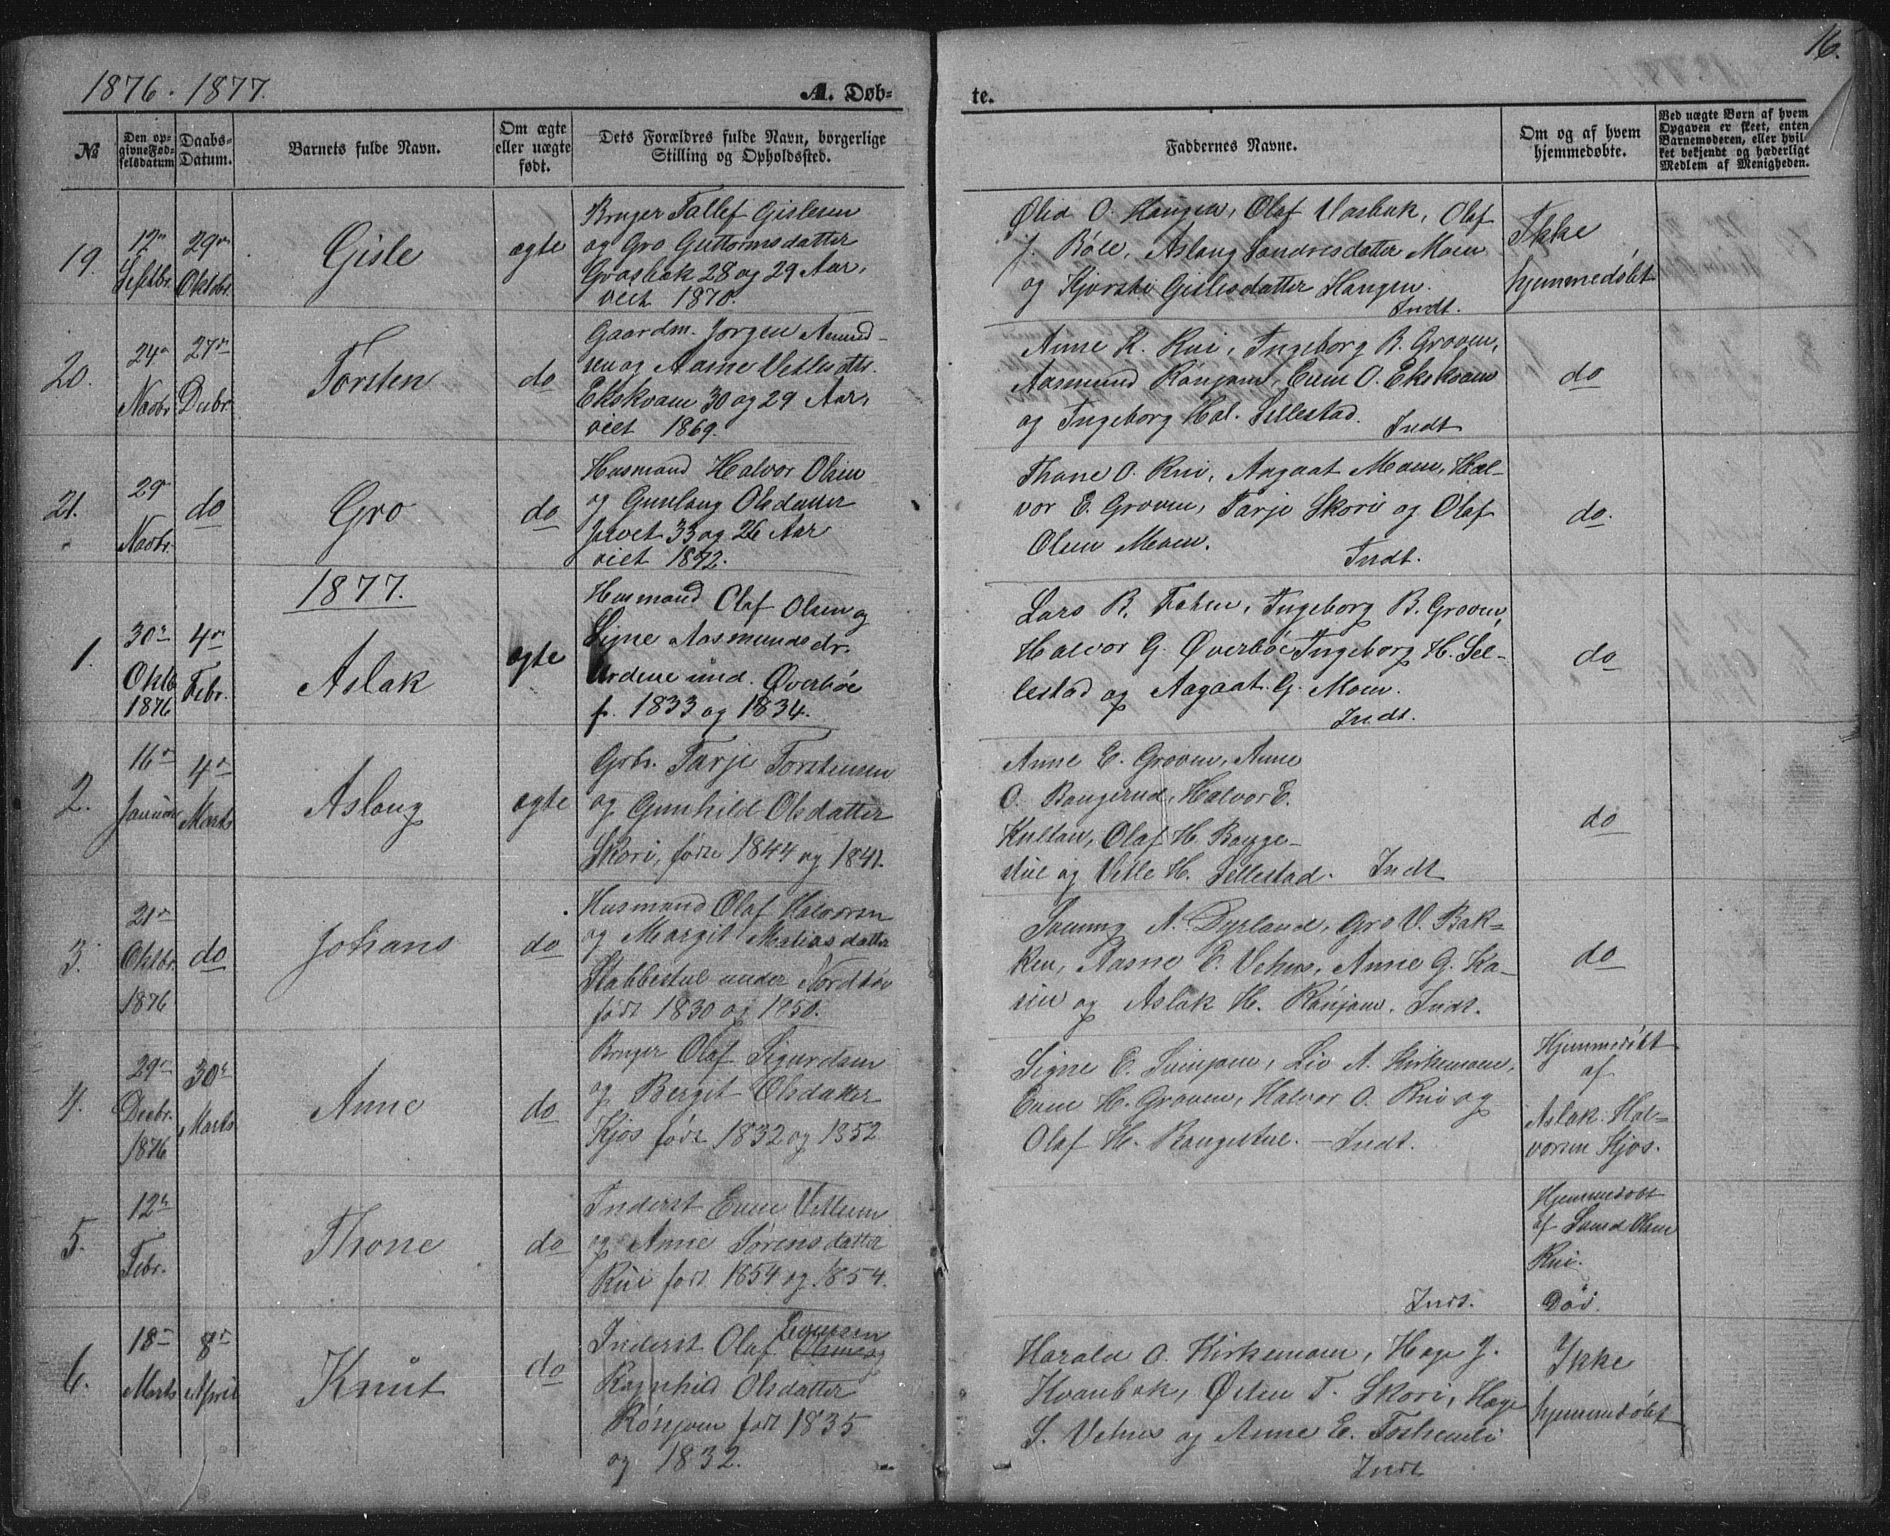 1876. 1877.
A. Døb-
te.
16.
№
Den opgivne Fødselsdatum
Daabs-Datum.
Barnets fulde Navn.
Om ægte eller uægte født.
Dets Forældres fulde Navn, borgerlige Stilling og Opholdssted.
Faddernes Navne.
Om og af hvem hjemmedøbte.
Ved uægte Børn af hvem Opgaven er skeet, enten Barnemoderen, eller hvilket bekjendt og hæderligt Medlem af Menigheden.
19.
12te Septbr.
29de Oktobr.
Gisle
ægte
Bruger Tallef Gislesen
og Gro Guttormsdatter
Grosbak 28 og 29 Aar,
viet 1870.
Øled O. Haugen, Olaf Vasbak, Olaf
J. Bøle, Aslaug Sondresdatter Moen
og Kjersti Gislesdatter Haugen.
Indt.
Ikke
hjemmedøbt
20.
24de Novbr.
27de Decbr.
Torsten
do
Gaardm. Jørgen Amund-
sen og Aasne Vetlesdtr.
Ekskvam 30 og 29 Aar,
viet 1869.
Anne K. Rui, Ingeborg B. Groven,
Aasmund Rønjom, Even O. Ekskvam
og Ingeborg Hal. Sellestad.
Indt
do
21.
29 Novbr.
do
Gro
do
Husmand Halvor Olsen
og Gunlaug Olsdatter
Juvet 33 og 26 Aar
viet 1872.
Thone O. Rui, Aagaat Moen, Hal-
vor E. Groven, Tarje Skori og Olaf
Olsen Moen.
Indt.
do.
1877.
1.
30te Oktb. 1876
4de Febr.
Aslak
ægte
Husmand Olaf Olsen og
Signe Aasmundsdr.
Urdene und. Øverbøe
f. 1833 og 1834.
Lars R. Fehn, Ingeborg B. Groven,
Halvor G. Øverbøe Ingeborg H. Sel-
lestad og Aagaat G. Moen.
Indt.
do
2.
16de Januar
4de Marts
Aslaug
ægte
Grbr. Tarje Torstensen
og Gunhild Olsdatter
Skori, fødte 1844 og 1841.
Anne E. Groven, Anne
O. Baugerud, Halvor E.
Kultan, Olaf H. Bagge-
stul og Vetle H. Sellestad. Indt
do
3.
21de Oktbr. 1876
do
Johans
do
Husmand Olaf Halvorsen
og Margit Matiasdatter
Stabbestul under Nordbøe
født 1830 og 1850.
Sveinung A. Dyrland, Gro V. Bak-
ken, Aasne E. Vehus, Anne G. Ka-
sin og Aslak H. Rønjom. Indt.
do
4.
29de Decbr. 1876
30te Marts
Anne
do
Bruger Olaf Sigurdsen
og Bergit Olsdatter
Kjos født 1832 og 1852
Signe E. Svinjom, Liv A. Kirkemoen,
Even H. Groven, Halvor O. Rui og
Olaf H. Baugestul. — Indt.
Hjemmedøbt
af
Aslak Hal-
vorsen Kjos.
5.
12te Febr.
Thone
do
Inderst Even Vetlesen
og Anne Sørensdatter
Rui født 1854 og 1854.
Indt.
Hjemmedøbt
af Svend Olsen
Rui.
Død.
6.
18de Marts
8de April
Knut
do
Inderst Olaf Evensen
Olsen og
Ragnhild Olsdatter
Rønjom født 1835
og 1832.
Harald O. Kirkemoen, Hage J.
Kvanbak, Østen T. Skori, Hæge
S. Vehus og Anne E. Foshemli
Indt
Ikke
hjemmedøbt